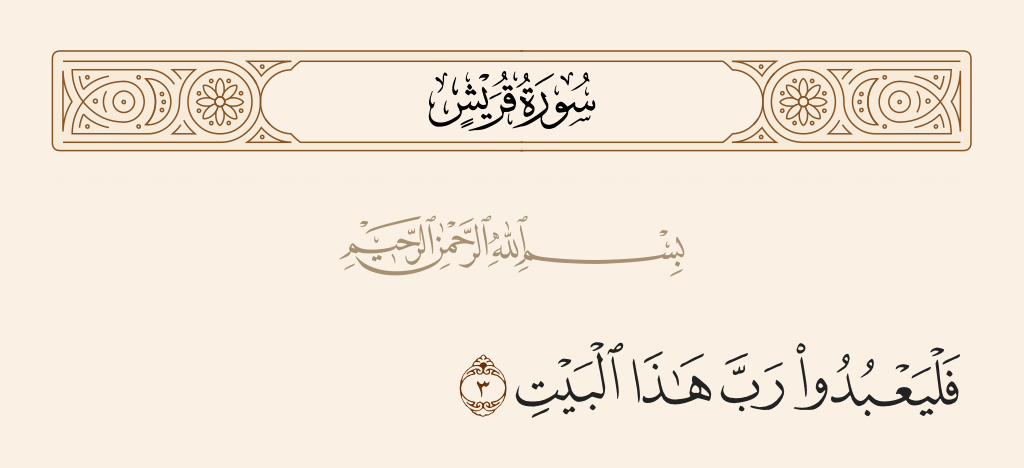 سُورَةُ قُرَيْشٍ
بِسْمِ ٱللَّهِ ٱلرَّحْمَٰنِ ٱلرَّحِيمِ
فَلْيَعْبُدُوا۟ رَبَّ هَٰذَا ٱلْبَيْتِ ٣